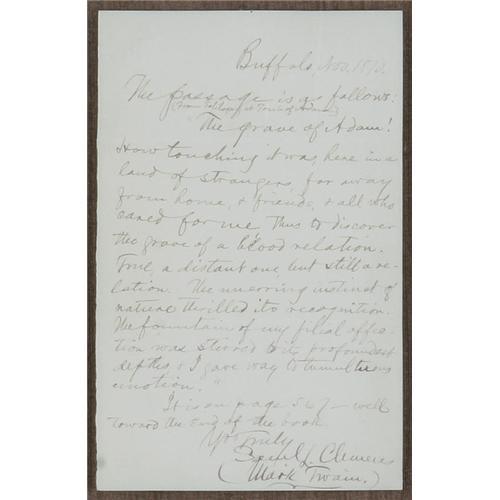 Buffalo, Nov. 1870.
The passage is as follows:
(From Soliloquy at Tomb of Adam)
"The grave of Adam!
How touching it was, here in a
land of strangers, far away
from home, & friends, & all who
cared for me, thus to discover
the grave of a blood relation.
True, a distant one, but still a re-
lation. The unerring instinct of
nature thrilled its recognition.
The fountain of my filial affec-
tion was stirred to its profoundest
depths, & I gave way to tumultuous
emotion."
It is on page 567 — well
toward the end of the book.
Yrs Truly
Saml. L. Clemens
(Mark Twain.)